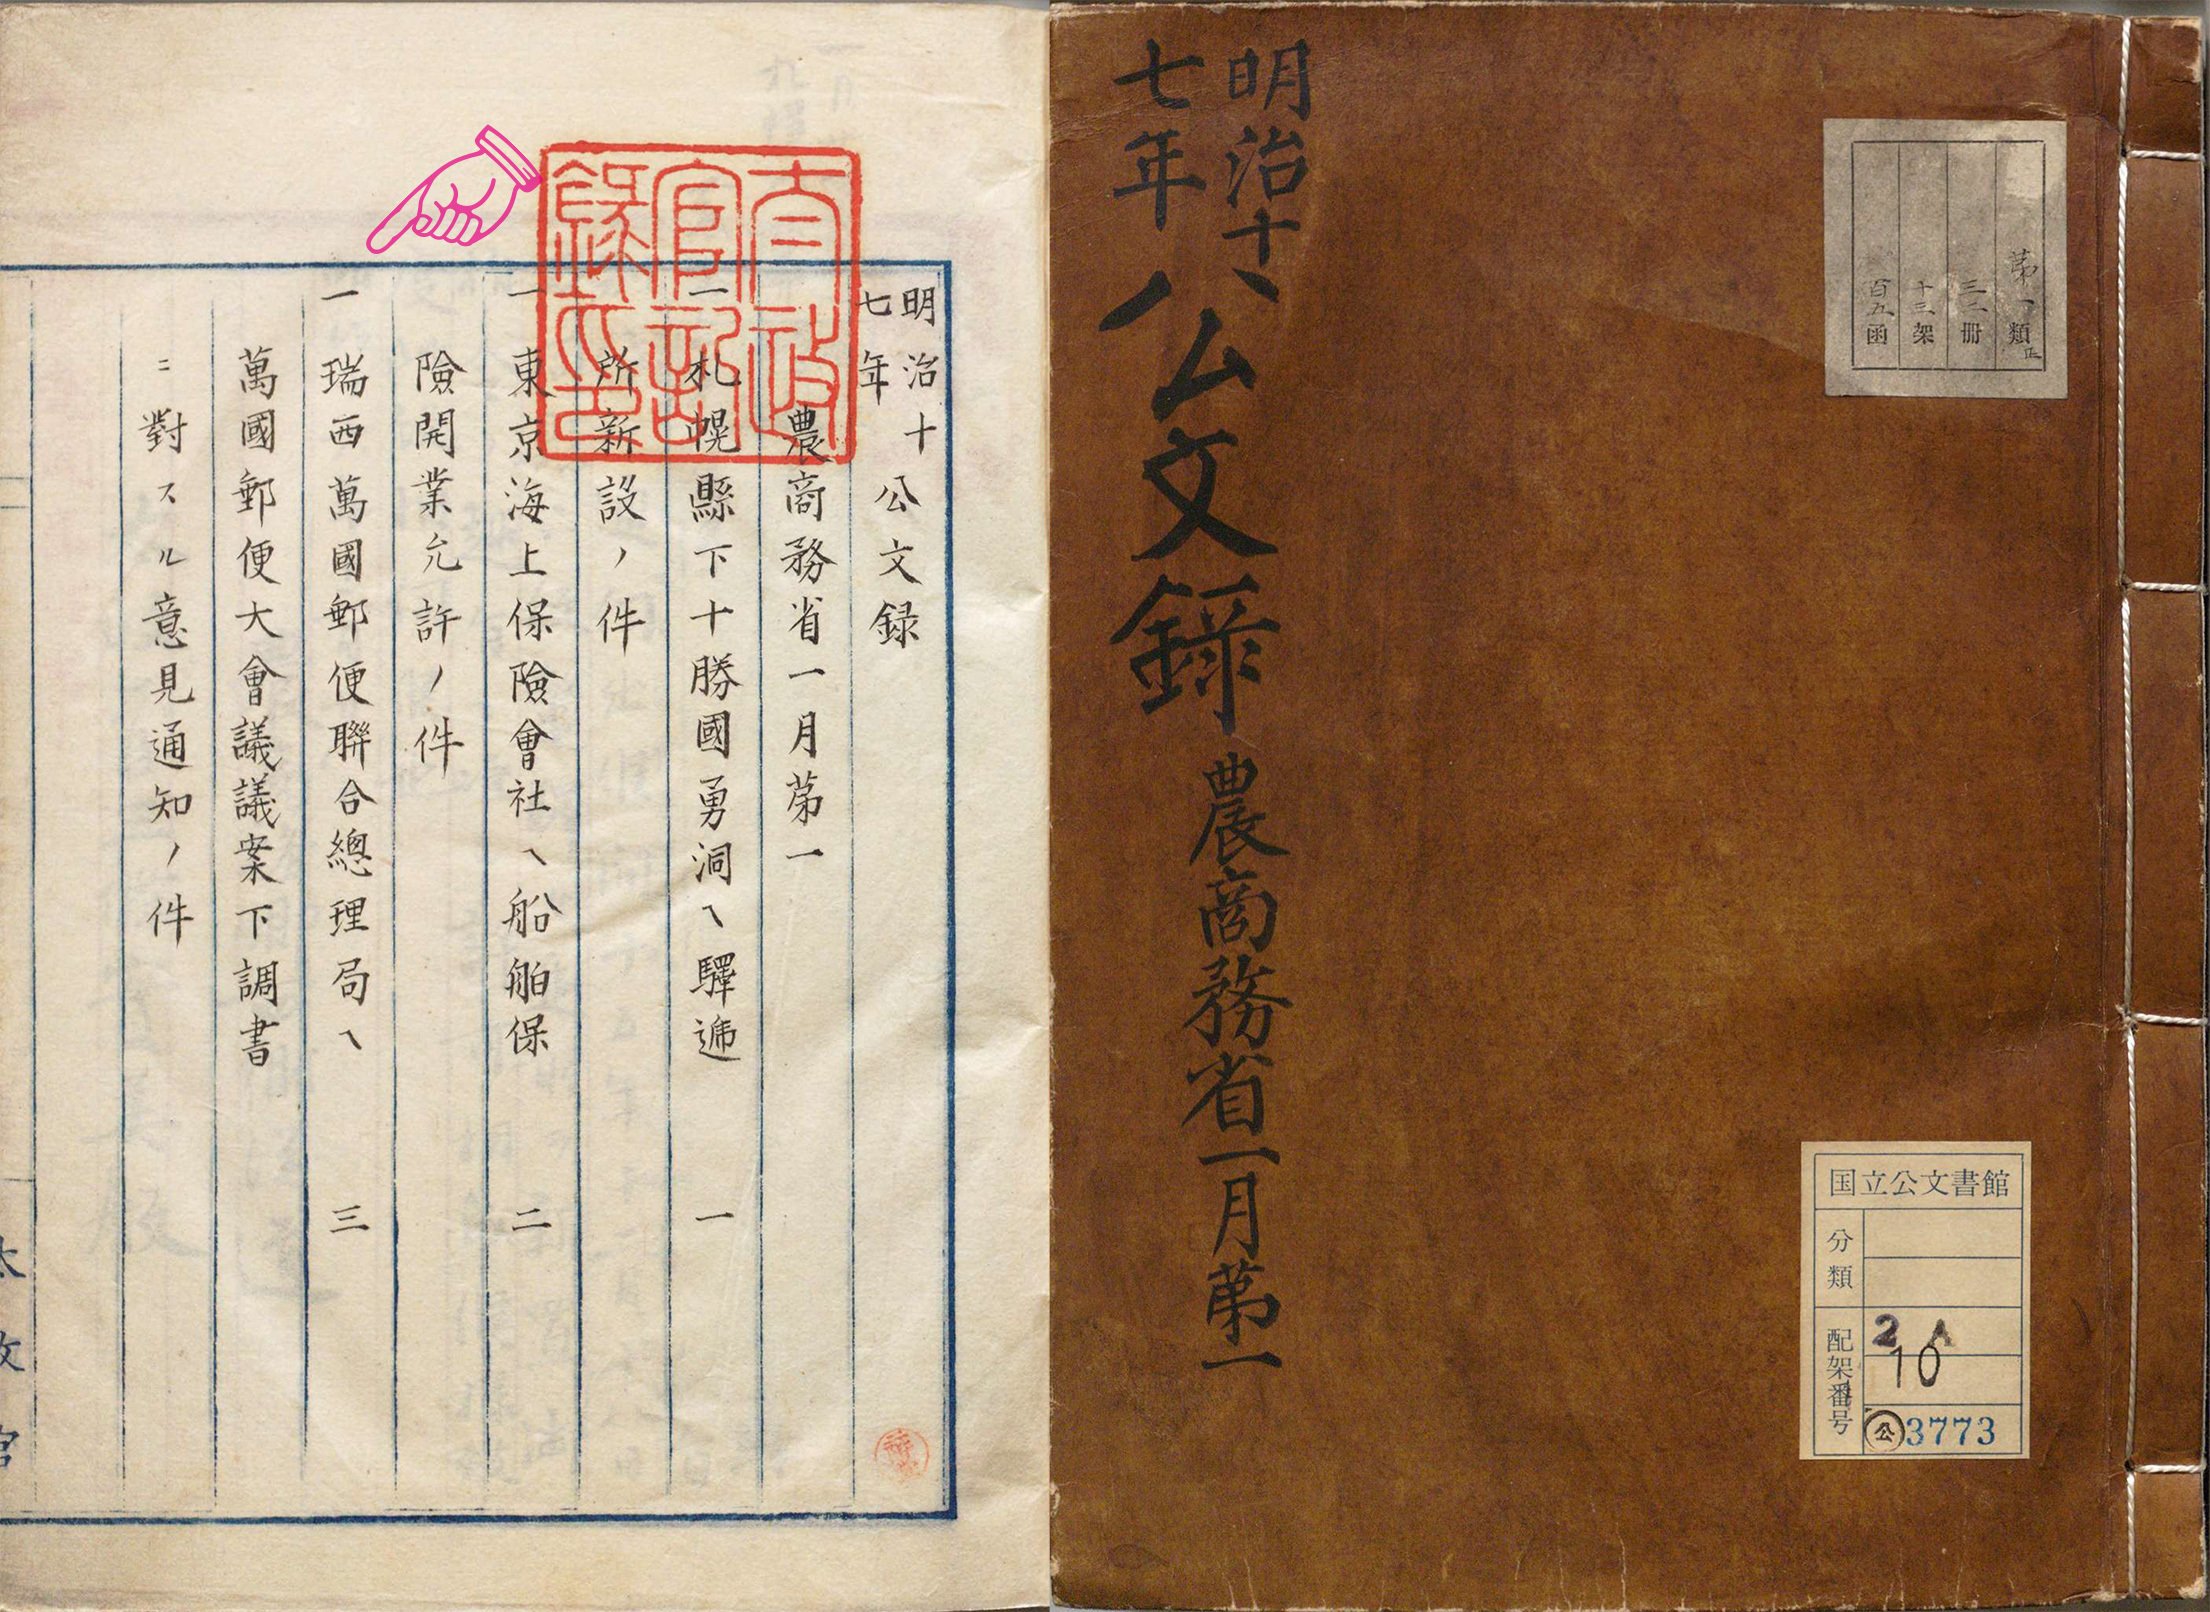 明治十七年
公文録
農商務省一月第一
第一類正
三一冊
十三架
百五函
国立公文書館
分類
配架番号
2A
10
公3773
太政官記録印
明治十七年公文録
農商務省一月第一
一札幌縣下十勝國勇洞ヘ驛逓 一
所新設ノ件
一東京海上保險會社ヘ船舶保 二
險開業允許ノ件
一瑞西萬國郵便聯合總理局ヘ 三
萬國郵便大會議議案下調書
ニ對スル意見通知ノ件
太政官